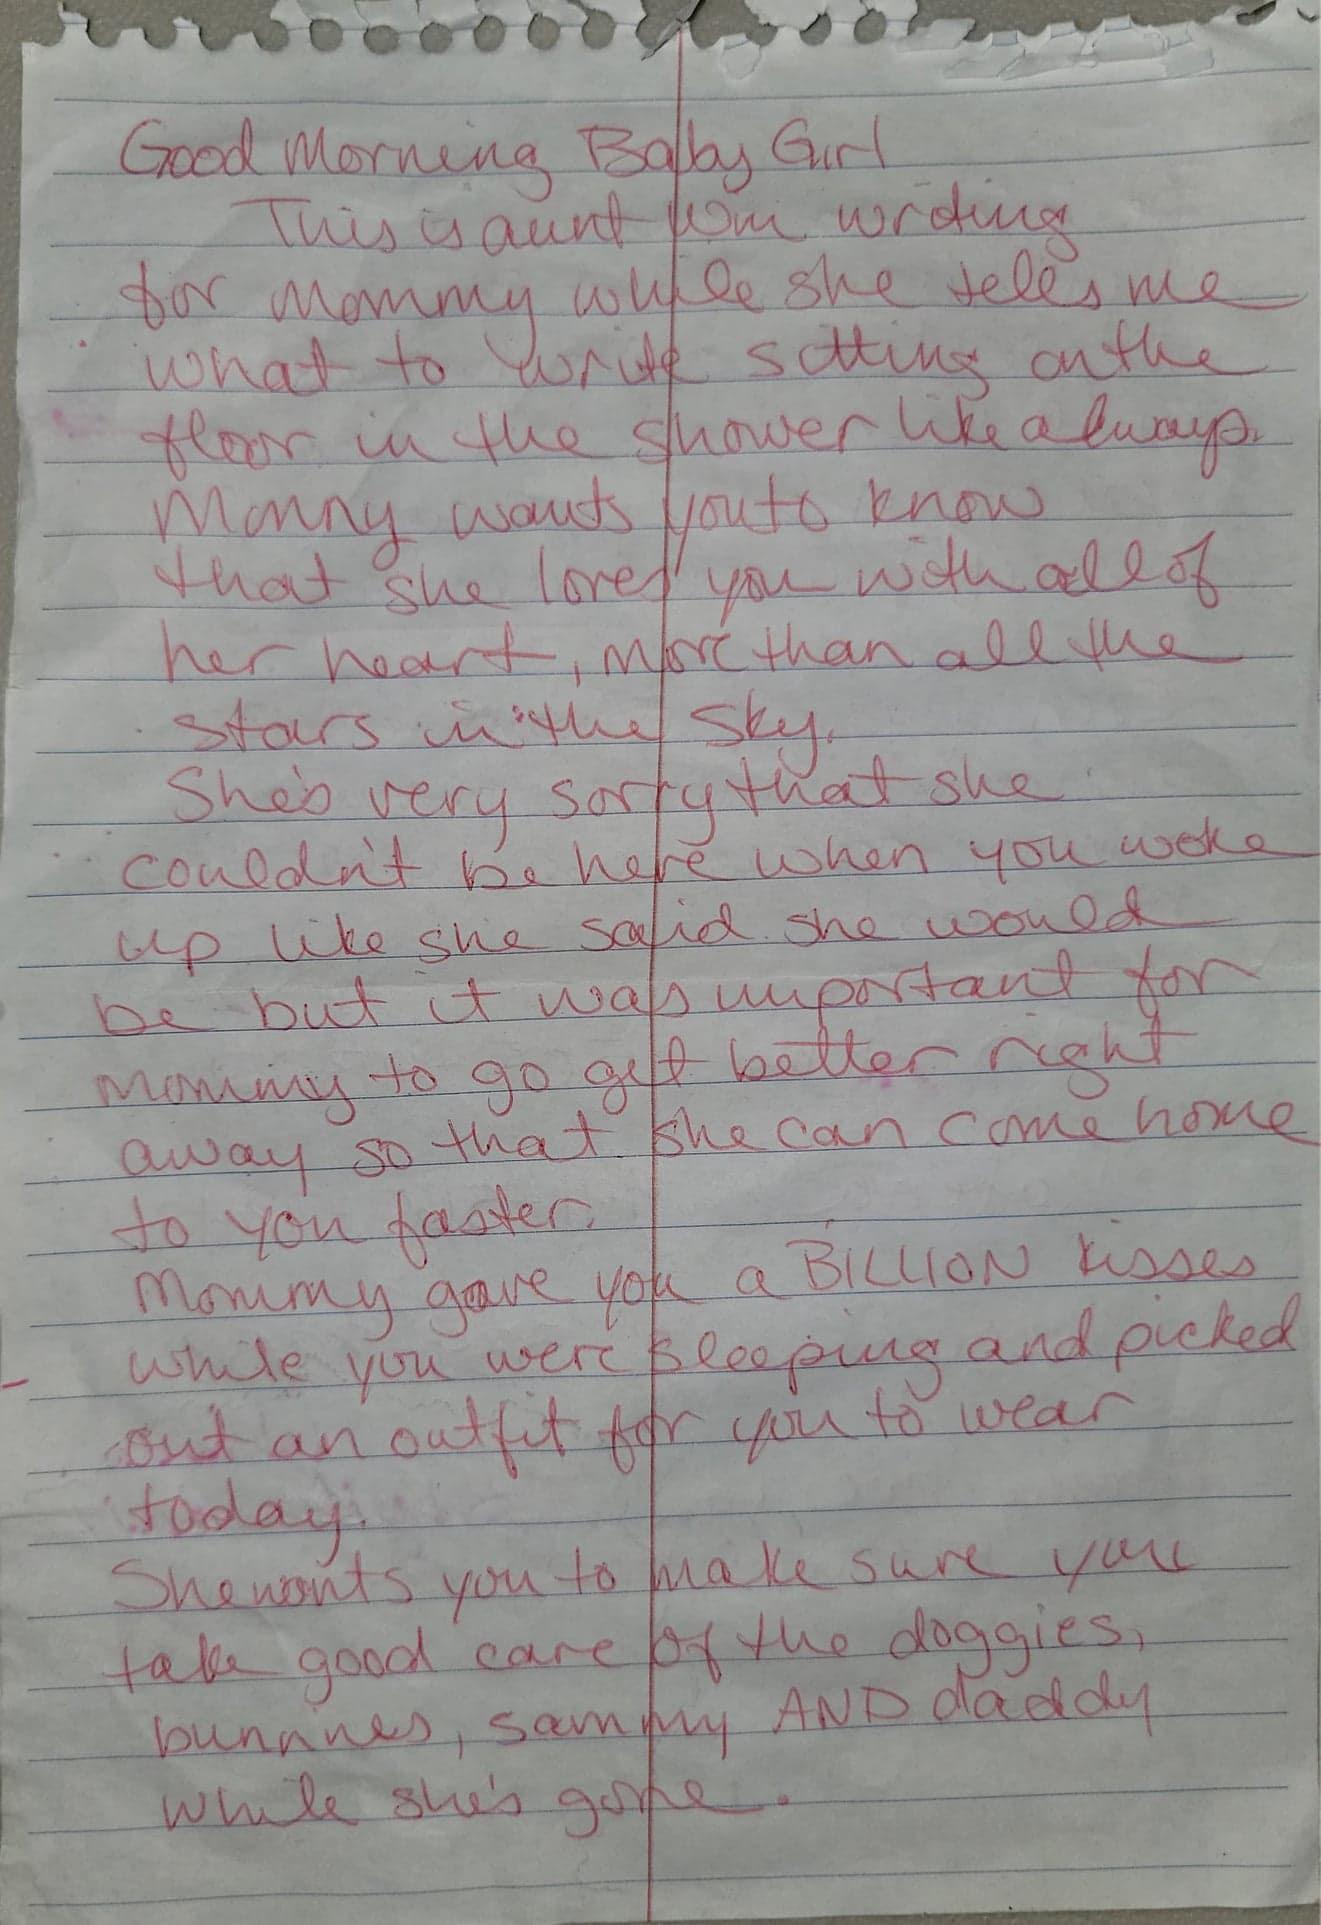 Good Morning Baby Girl
This is aunt writing
for Mommy while she tells me
what to write sitting on the
floor in the shower like always.
Mommy wants you to know
that she loves you with all of
her heart, more than all the
stars in the sky.
She's very sorry that she
couldn't be here when you woke
up like she said she would
be but it was important for
Mommy to go get better right
away so that she can come home
to you faster.
Mommy gave you a BILLION kisses
while you were sleeping and picked
out an outfit for you to wear
today.
She wants you to make sure you
take good care of the doggies,
bunnines, sammy AND daddy
while she's gone.